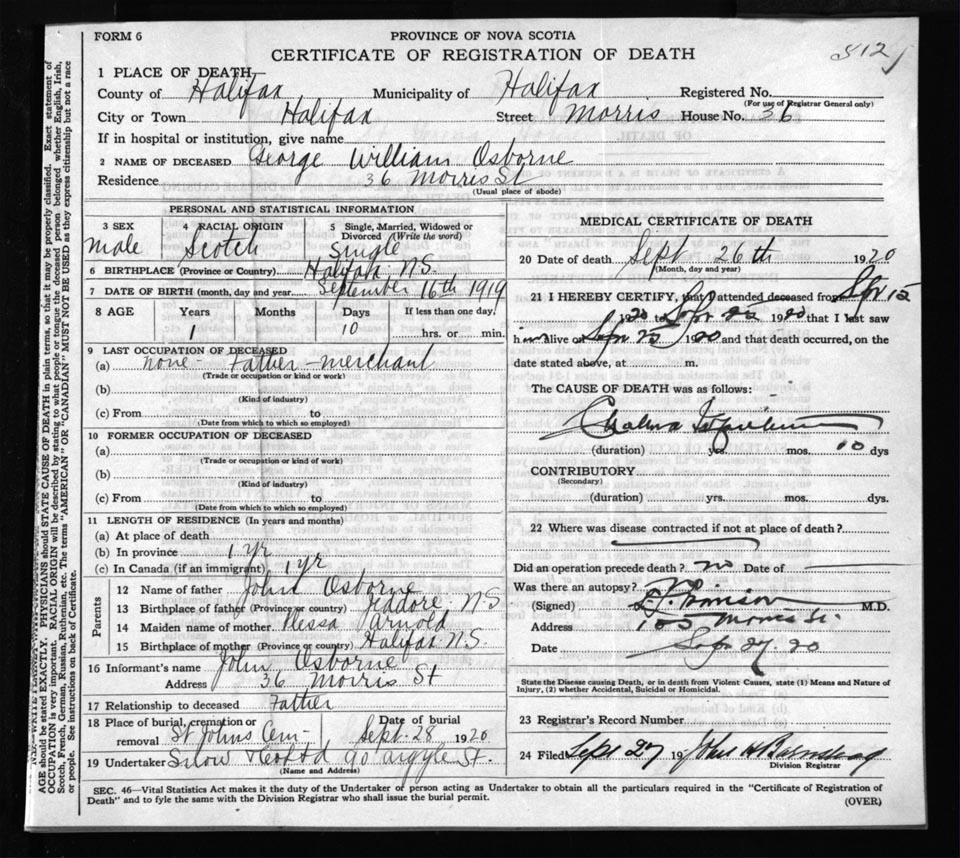 FORM 6
PROVINCE OF NOVA SCOTIA
CERTIFICATE OF REGISTRATION OF DEATH
1 PLACE OF DEATH
County of Halifax Municipality of Halifax Registered No.
(For use of Registrar General only)
City or Town Halifax Street Morris House No. 36
If in hospital or institution, give name
2 NAME OF DECEASED George William Osborne
Residence 36 Morris St
(Usual place of abode)
PERSONAL AND STATISTICAL INFORMATION
3 SEX 4 RACIAL ORIGIN 5 Single, Married, Widowed or Divorced (Write the word)
Male Scotch Single
6 BIRTHPLACE (Province or Country) Halifax N.S.
7 DATE OF BIRTH (month, day and year) September 16th 1919
8 AGE Years Months Days If less than one day,
1 10 hrs. or min.
9 LAST OCCUPATION OF DECEASED
(a) none - Father - merchant
(Trade or occupation or kind or work)
(b)
(Kind of industry)
(c) From to
(Date from which to which so employed)
10 FORMER OCCUPATION OF DECEASED
(a)
(Trade or occupation or kind of work)
(b)
(Kind of industry)
(c) From to
(Date from which to which so employed)
11 LENGTH OF RESIDENCE (In years and months)
(a) At place of death
(b) In province 1 yr
(c) In Canada (if an immigrant) 1 yr
Parents
12 Name of father John Osborne
13 Birthplace of father (Province or country) Jeddore N S
14 Maiden name of mother Arnold
15 Birthplace of mother (Province or country) Halifax N.S.
16 Informant's name John Osborne
Address 36 Morris St
17 Relationship to deceased Father
18 Place of burial, cremation or removal St Johns Cem Date of burial Sept. 28 1920
19 Undertaker Snow 90 Argyle St.
(Name and Address)
MEDICAL CERTIFICATE OF DEATH
20 Date of death Sept 26th 1920
(Month, day and year)
21 I HEREBY CERTIFY, that I attended deceased from Sep 15
1920 to Sep 1920 that I last saw
him alive on Sep 25 1920 and that death occurred, on the
date stated above, at m.
The CAUSE OF DEATH was as follows:
Cholera Infantum
(duration) yrs. mos. 10 dys
CONTRIBUTORY
(Secondary)
(duration) yrs. mos. dys.
22 Where was disease contracted if not at place of death?
Did an operation precede death? no Date of
Was there an autopsy?
(Signed) M.D.
Address 103 Morris St.
Date Sep 27. 20
State the Disease causing Death, or in death from Violent Causes, state (1) Means and Nature of
Injury, (2) whether Accidental, Suicidal or Homicidal.
23 Registrar's Record Number
24 Filed Sept 27 19 John
Division Registrar
SEC. 46—Vital Statistics Act makes it the duty of the Undertaker or person acting as Undertaker to obtain all the particulars required in the "Certificate of Registration of
Death" and to fyle the same with the Division Registrar who shall issue the burial permit. (OVER)
AGE should be stated EXACTLY. PHYSICIANS should STATE CAUSE OF DEATH in plain terms, so that it may be properly classified. Exact statement of
OCCUPATION is very important. RACIAL ORIGIN will be described by stating to what people or tongue the deceased person belonged whether English, Irish,
Scotch, French, German, Russian, Ruthenian, etc. The terms "AMERICAN" OR "CANADIAN" MUST NOT BE USED as they express citizenship but not a race
or people. See instructions on back of Certificate.